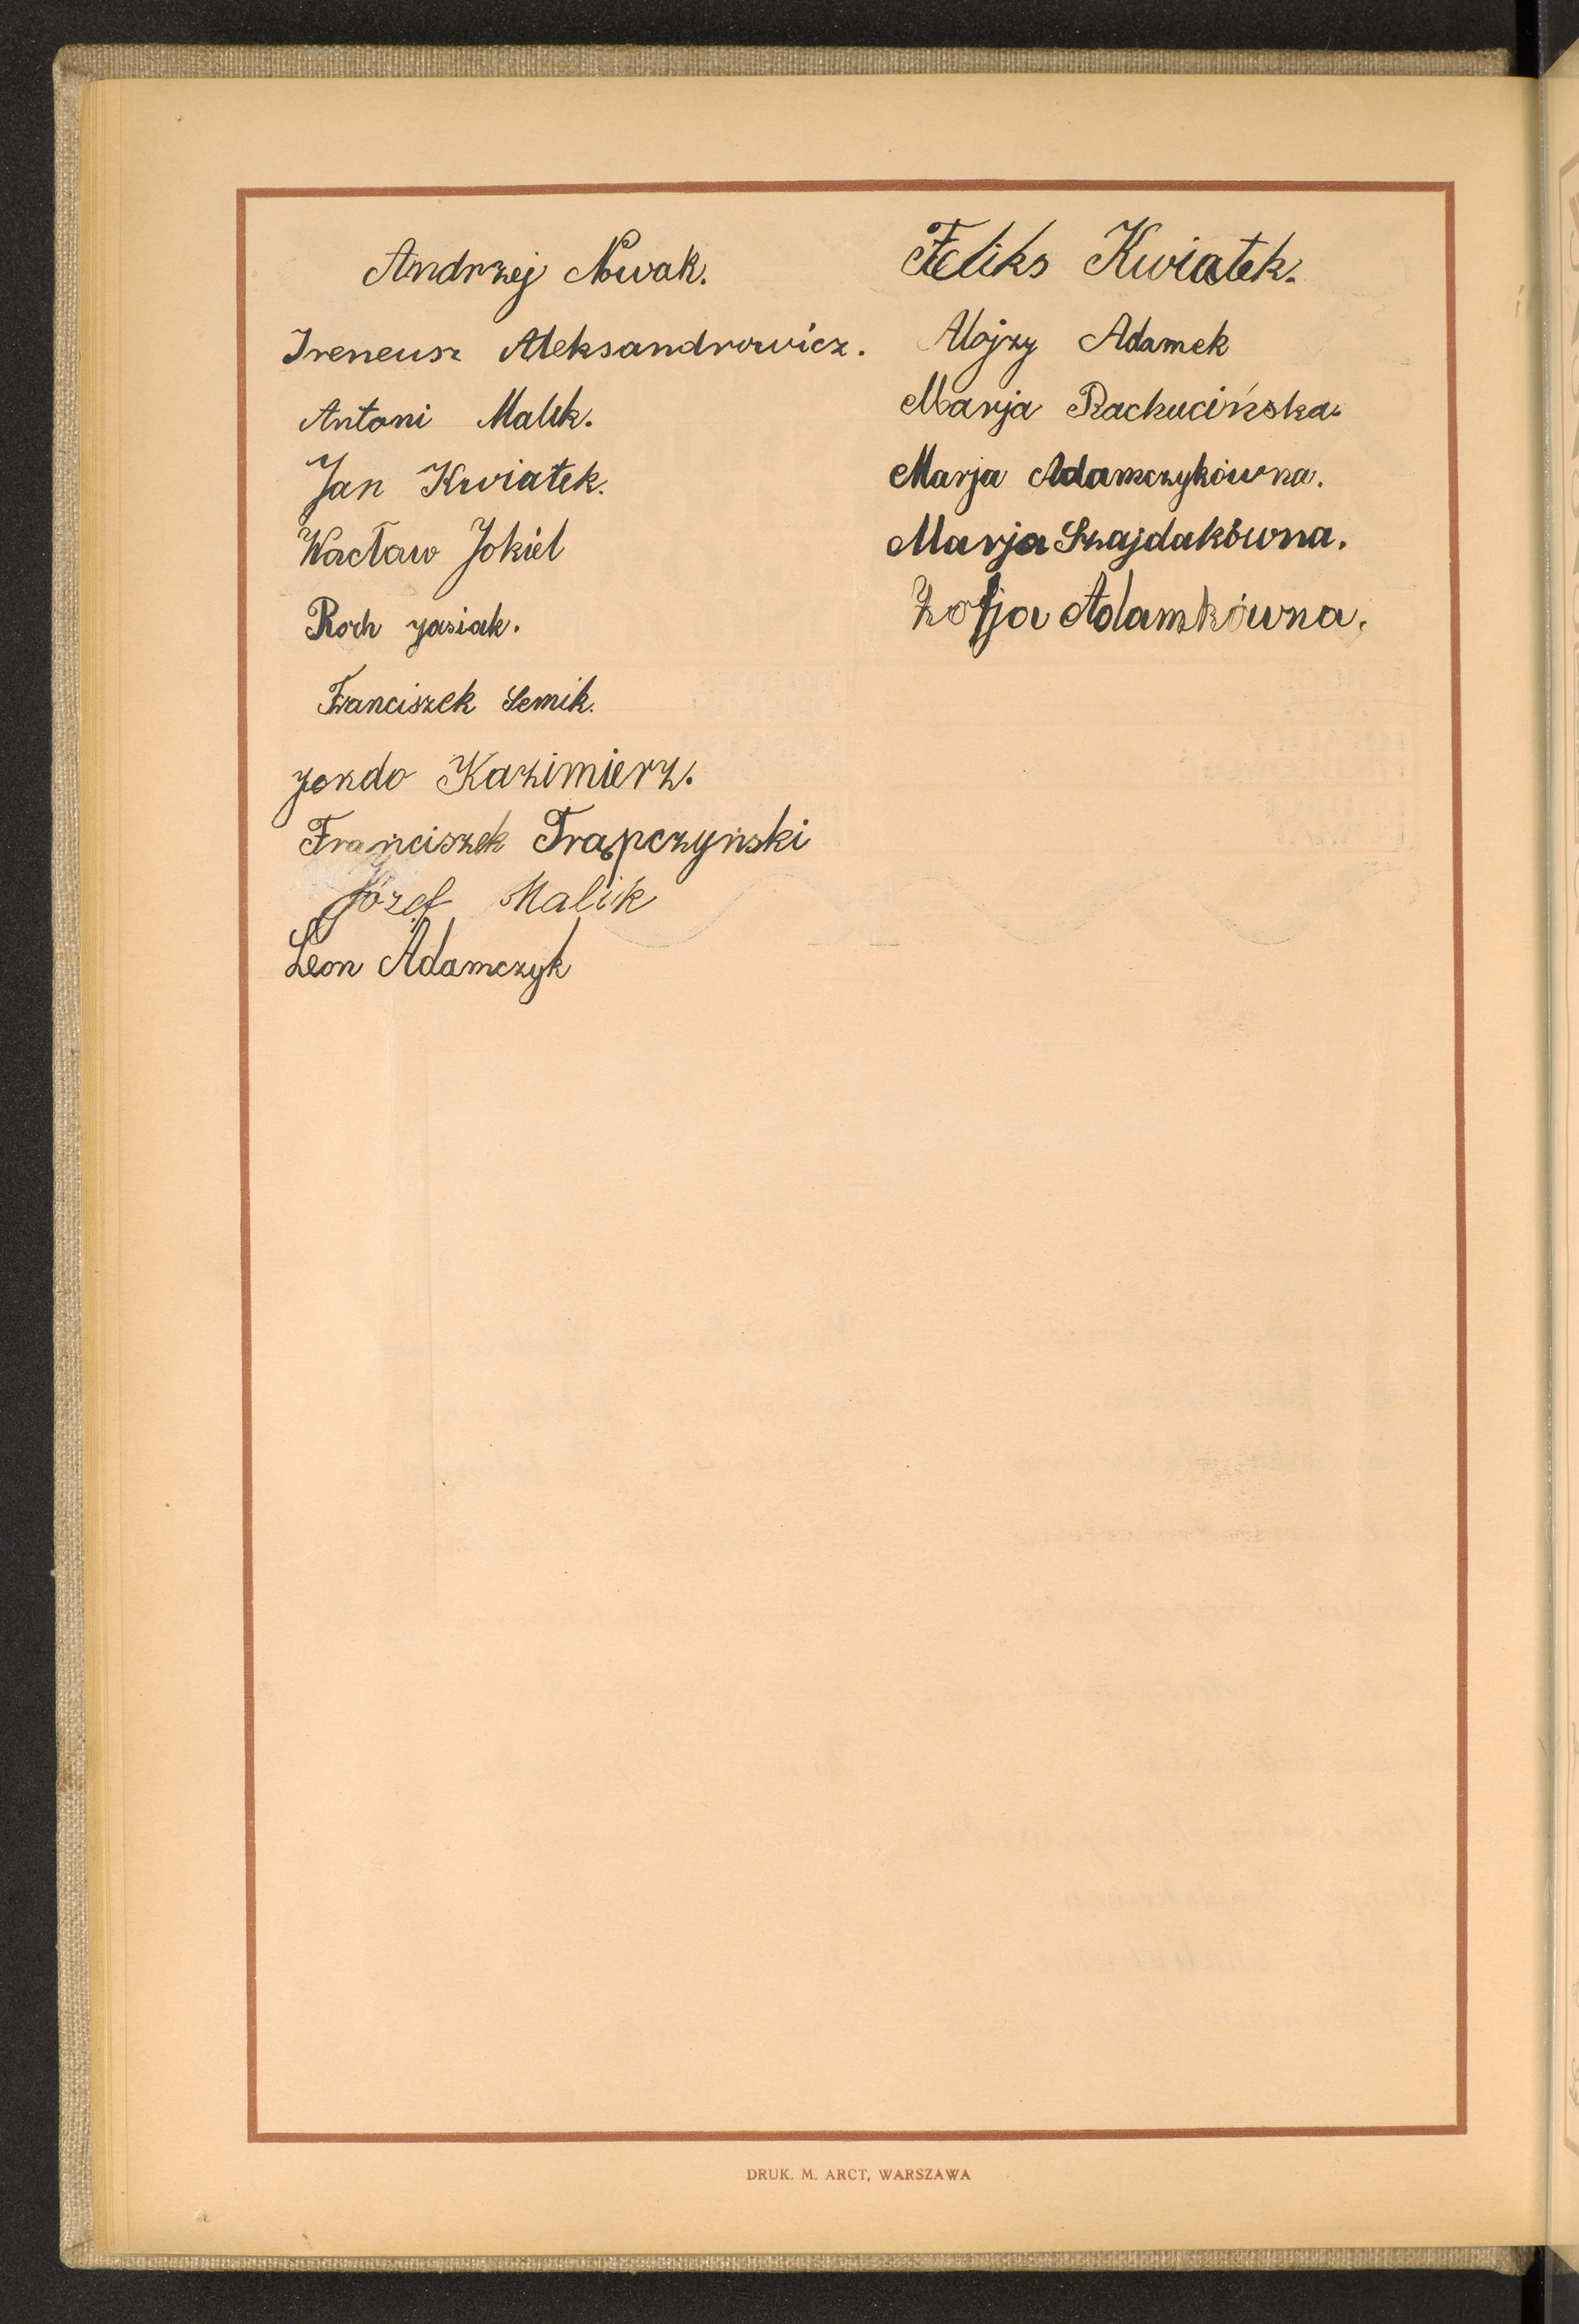 Andrzej Nowak.
Ireneusz Aleksandrowicz.
Antoni Malik.
Jan Kwiatek.
Wacław Jokiel
Roch Jasiak.
Franciszek Semik.
Kazimierz.
Franciszek Trąpczyński
Józef Malik
Leon Adamczyk
Feliks Kwiatek.
Alojzy Adamek
Marja Rachucińska.
Marja Adamczykówna.
Marja Szajdakówna.
Zofja Adamkówna.
DRUK. M. ARCT, WARSZAWA